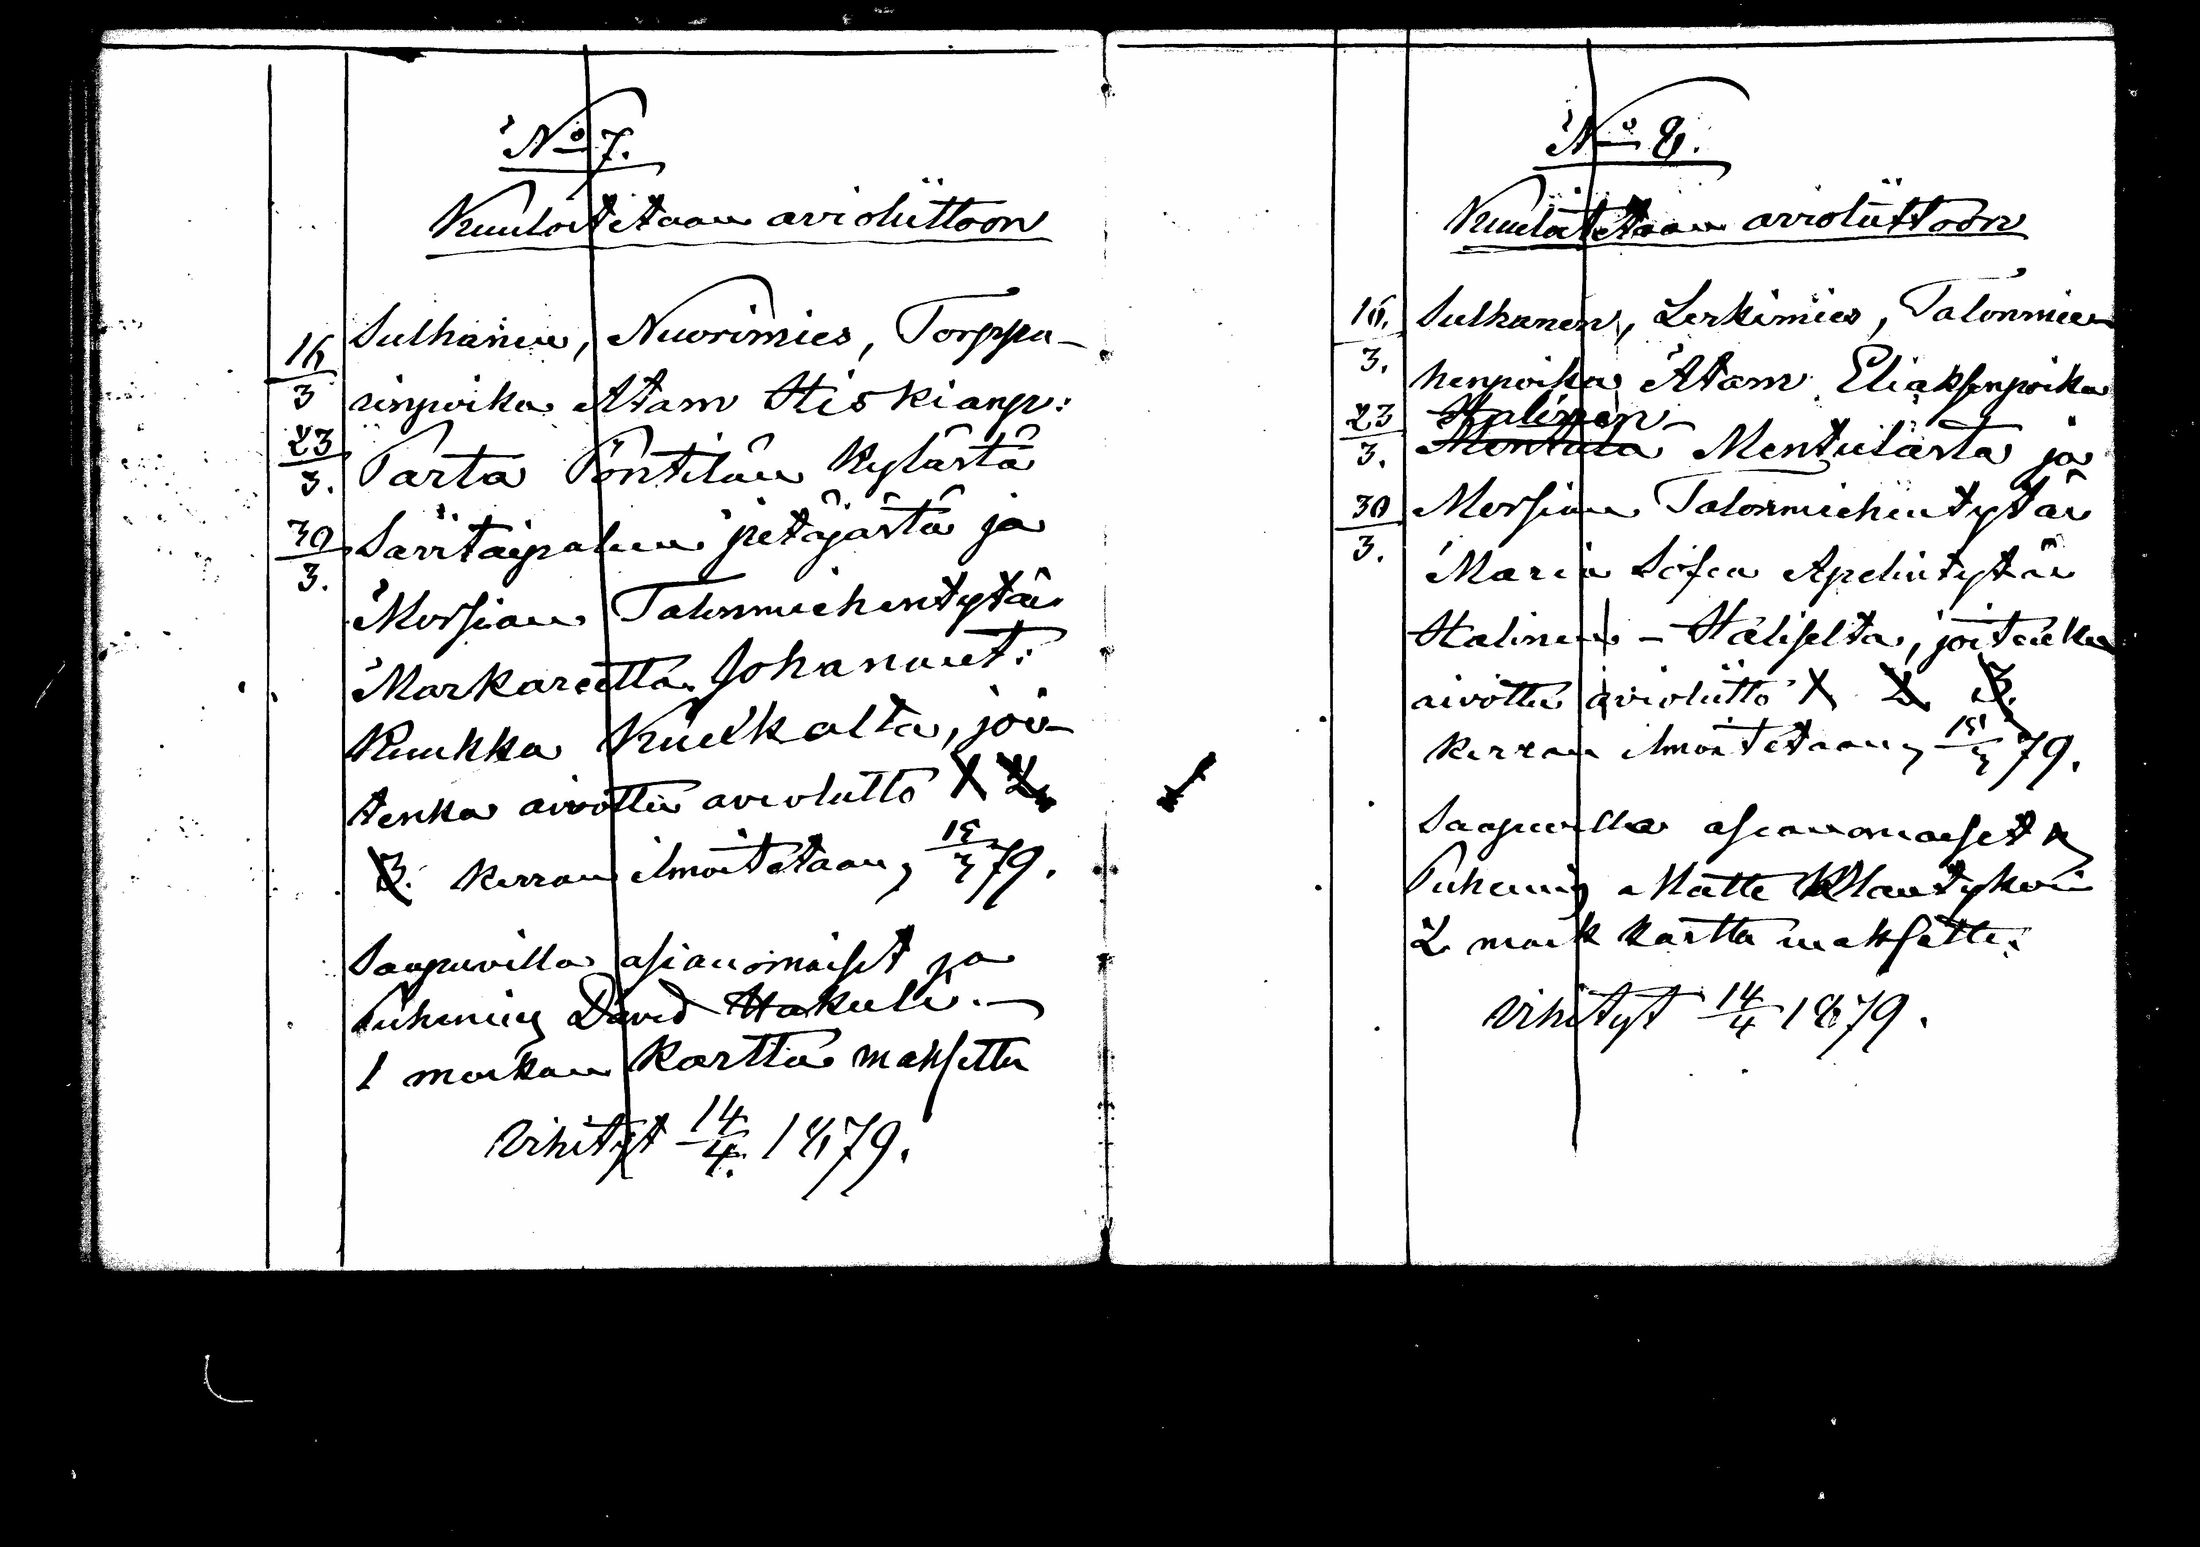 No 7.
Kuuloitetaan avioliittoon
16/3 Sulhanen, Nuorimies, Torppa-
rinpoika Atam Hiskianp:
23/3. Parta Pöntilän kylästä
30/3. Savitaipaleen pitäjästä ja
Morsian Talonmiehentytär
Markareetta Johanint:
Kuukka Kuukkalta, joi-
tenka aivottu avioliitto 1 2
3. kerran ilmoitetaan, 15/3 79.
Saapuvilla asianomaiset ja
Puhemies David Hakuli. —
1 markan kartta maksettu
Vihityt 14/4. 1879.
No 8.
Kuuloitetaan avioliittoon
16/3. Sulhanen, Leskimies, Talonmie-
henpoika Atam Eliaksenpoika
Halinen
23/3. Mentula Mentulasta ja
30/3. Morsian Talonmiehentytär
Maria Sofia Apelintytär
Halinen - Haliselta, joitenka
aivottu avioliitto 1 2 3.
kerran ilmoitetaan, 15/3 79.
Saapuvilla asianomaiset ja
Puhemies Matti
2 mark kartta maksettu.
Vihityt 14/4 1879.